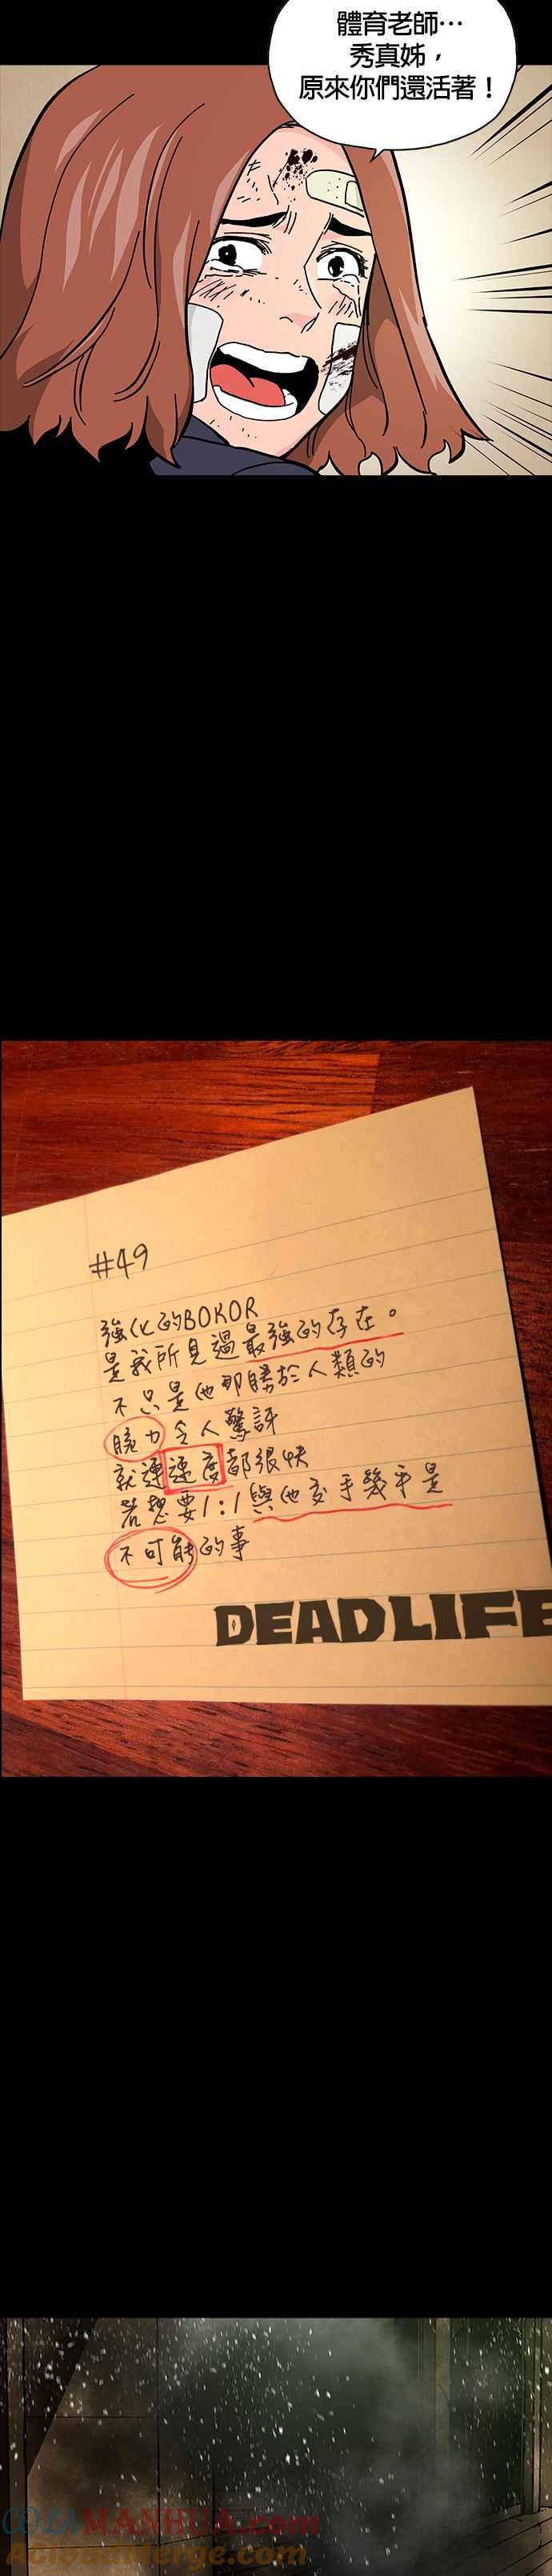 體育老師…
秀真姊，
原來你們還活著！
#49
強化的BOKOR
是我所見過最強的存在。
不只是他那勝於人類的
腕力令人驚訝
就連速度都很快
若想要1:1與他交手幾乎是
不可能的事
DEADLIFE
COLAMANHUA.com
Acloudmerge.com